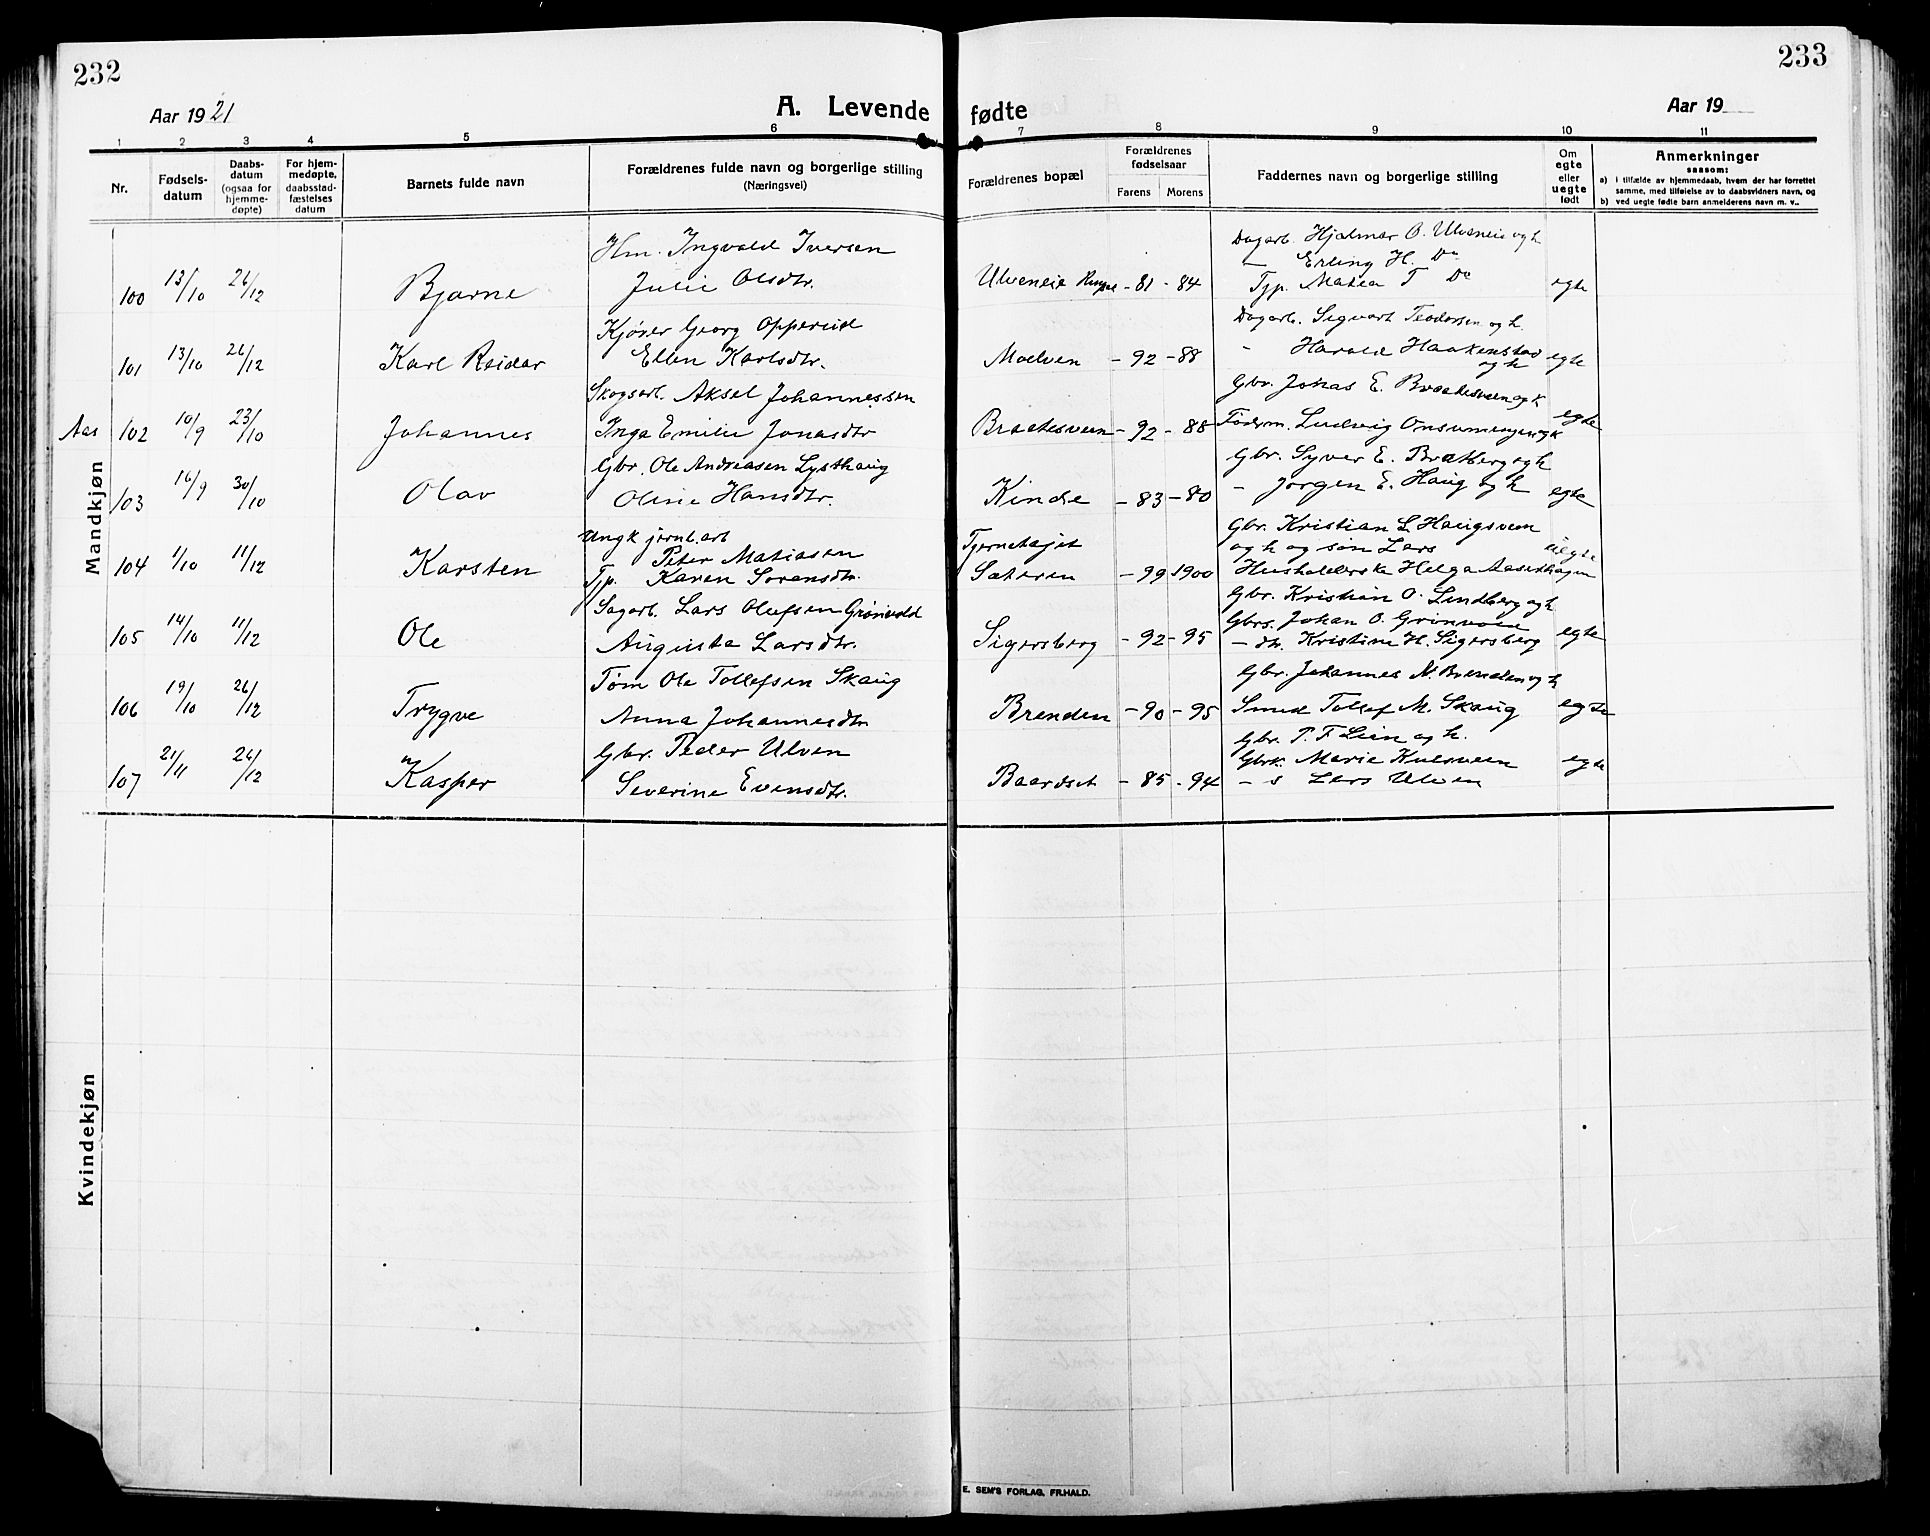 232
233
Aar 1921
A. Levende fødte
Aar 19
1 2 3 4 5 6 7 8 9 10 11
Nr.
Fødsels-
datum
Daabs-
datum
(ogsaa for
hjemme-
døpte)
For hjem-
medøpte,
daabsstad-
fæstelses
datum
Barnets fulde navn
Forældrenes fulde navn og borgerlige stilling
(Næringsvei)
Forældrenes bopæl
Forældrenes
fødselsaar
Farens Morens
Faddernes navn og borgerlige stilling
Om
egte
eller
uegte
født
Anmerkninger
saasom:
a) i tilfælde av hjemmedaab, hvem der har forrettet
samme, med tilføielse av to daabsvidners navn, og
b) ved uegte fødte barn anmelderens navn m. v..
Mandkjøn
100 13/10 26/12 Bjarne
Hm. Ingvald Iversen
Julie Olsdtr.
Ulveneie - 81 - 84
Dagarb. Hjalmar O. Ulveneie og h
— Erling H. Do
Tjp. Matea T Do
egte
101 13/10 26/12 Karl Reidar
Kjører Georg Opperud
Ellen Karlsdtr.
Moelven - 92 - 88
Dagarb. Sigvart Teodorsen og h.
- Harald Haakenstad
og h
egte
Aas 102 10/9 23/10 Johannes
Skogsarb. Aksel Johannessen
Inga Emilie Jonasdtr
Braatesveen - 92 - 88
Gbr. Jonas E. Braatesveen og k
Fødsm. Ludvig Onsumengen og k
egte
103 16/9 30/10 Olav
Gbr. Ole Andreasen Lysthaug
Oline Hansdtr.
Kinde - 83 - 80
Gbr. Syver E. Bratberg og h
- Jørgen E. Haug og h
egte
104 1/10 11/12 Karsten
Ungk jernb.arb
Peter Matiasen
Tjp. Karen Sørensdtr.
Tjernehajet
Sæteren - 99 1900
Gbr. Kristian L. Haugsveen
og h og søn Lars
Husholderske Helga Aasenhagen
uegte
105 14/10 11/12 Ole
Sagarb. Lars Olufsen Grønvold
Augusta Larsdtr.
Sigersberg - 92 - 95
Gbr. Kristian O. Lindberg og h
Gbrs. Johan O. Grønvold
- dtr. Kristine H. Sigersberg
egte
106 19/10 26/12 Trygve
Tøm Ole Tollefsen Skaug
Anna Johannesdtr
Brenden - 90 - 95
Gbr. Johannes N. Brenden og h
Smed Tollef M. Skaug
egte
107 21/11 26/12 Kasper
Gbr. Peder Ulven
Severine Evensdtr.
Baardset - 85 - 94
Gbr. P. F Lien og h.
Gbrk. Marie Kvesveen
- s Lars Ulven
egte
Kvindekjøn
E. SEM'S FORLAG, FR.HALD.